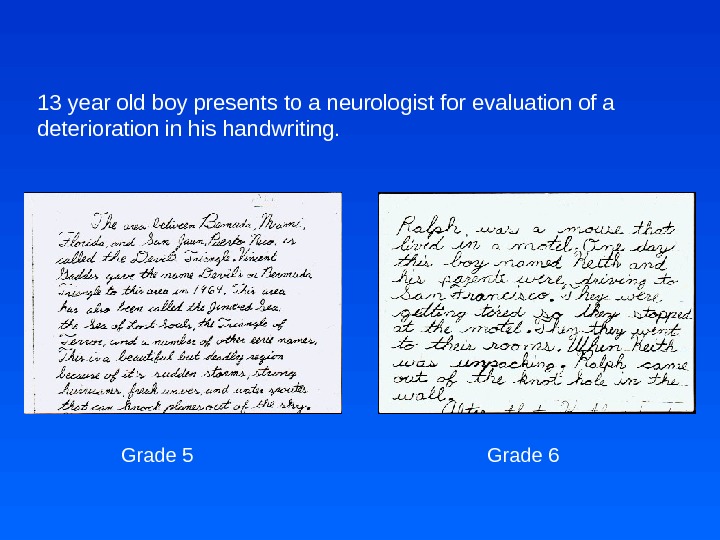 13 year old boy presents to a neurologist for evaluation of a
deterioration in his handwriting.
The area between Bermuda, Miami,
Florida, and San Juan, Puerto Rico, is
called the Devil's Triangle. Vincent
Gaddis gave the name Devil's or Bermuda
Triangle to this area in 1964. This area
has also been called the Limbo Sea,
the Sea of Lost Souls, the Triangle of
Terror, and a number of other eerie names.
This is a beautiful but deadly region
because of it's sudden storms, strong
hurricanes, freak waves, and water spouts
that can knock planes out of the sky.
Ralph, was a mouse that
lived in a motel. One day
this boy named Keith and
his parents were, driving to
San Francisco. They were
getting tored so they stopped
at the motel. They they went
to their rooms. When Keith
was unpacking. Ralph came
out of the knot hole in the
wall.
Grade 5
Grade 6